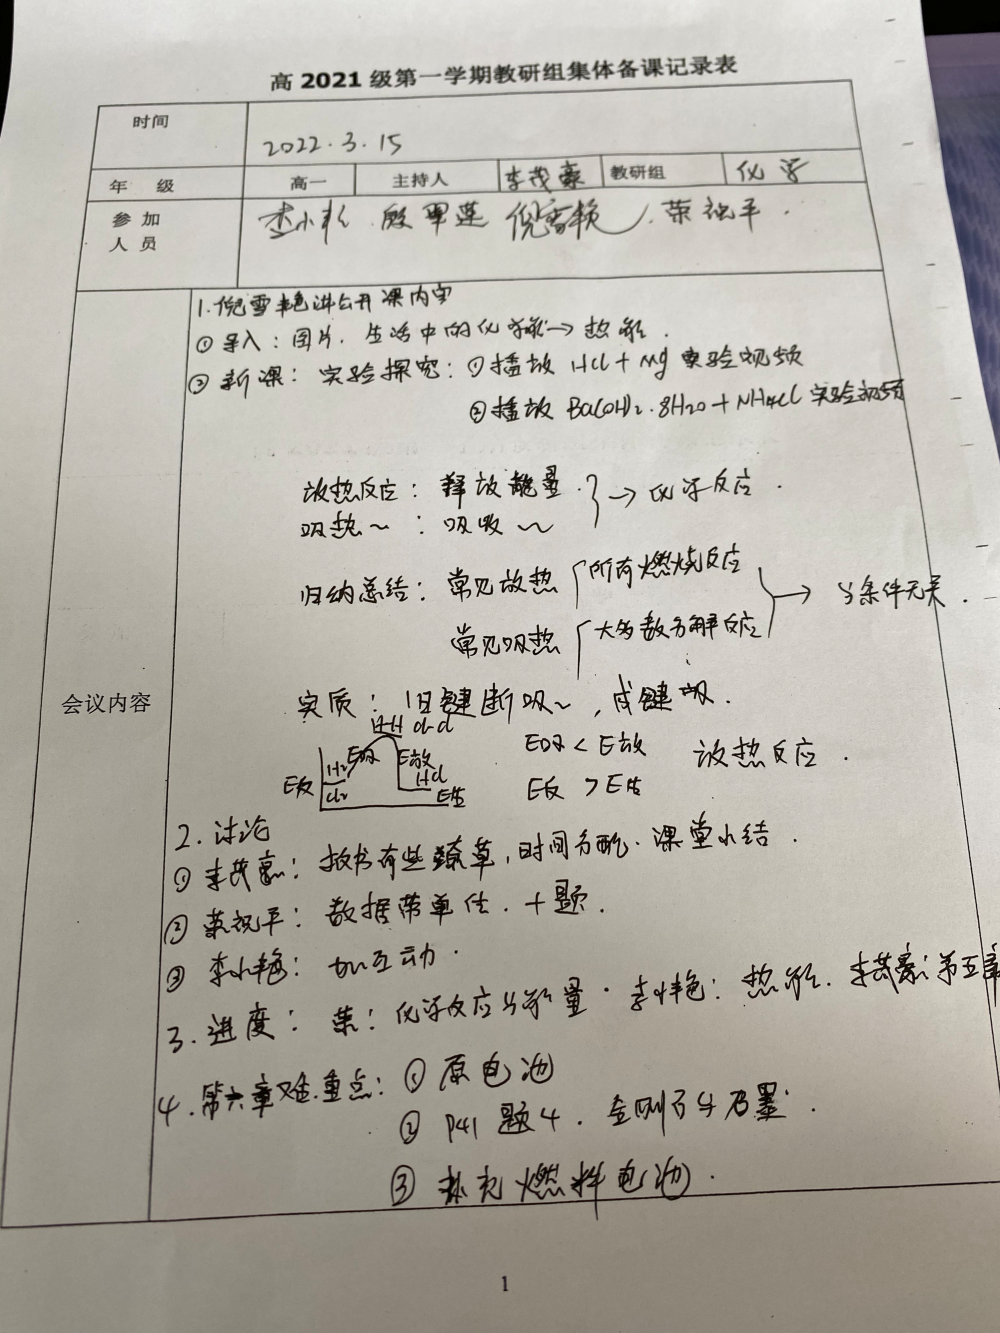 高 2021 级第一学期教研组集体备课记录表
时间 2022.3.15
年 级 高一 主持人 李茂豪 教研组 化学
参加人员 李小艳 殷翠莲 倪雪艳 荣祝平.
会议内容
1.倪雪艳讲公开课内容
① 导入：图片. 生活中的化学能→热能.
② 新课：实验探究：①播放 HCl+Mg 实验视频
②播放 Ba(OH)₂·8H₂O+NH₄Cl 实验视频
放热反应：释放能量. } → 化学反应.
吸热～：吸收～
归纳总结：常见放热 { 所有燃烧反应 } → 与条件无关.
常见吸热 { 大多数分解反应
实质：旧键断吸～，成键放.
H-H Cl-Cl
E反 H₂ Cl₂ E吸 E放 HCl E生
E吸 < E放 放热反应.
E反 > E生
2.讨论
① 李茂豪：板书有些潦草，时间分配. 课堂小结.
② 荣祝平：数据带单位. +题.
③ 李小艳：加互动.
3.进度：荣：化学反应与能量. 李小艳：热能. 李茂豪：第五章
4.第六章难.重点：① 原电池
② P41 题4. 金刚石与石墨.
③ 补充燃料电池.
1